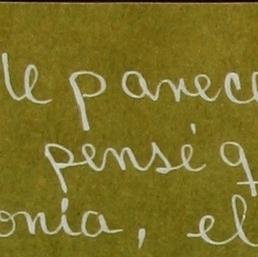 le parece
pensé q
onia, el